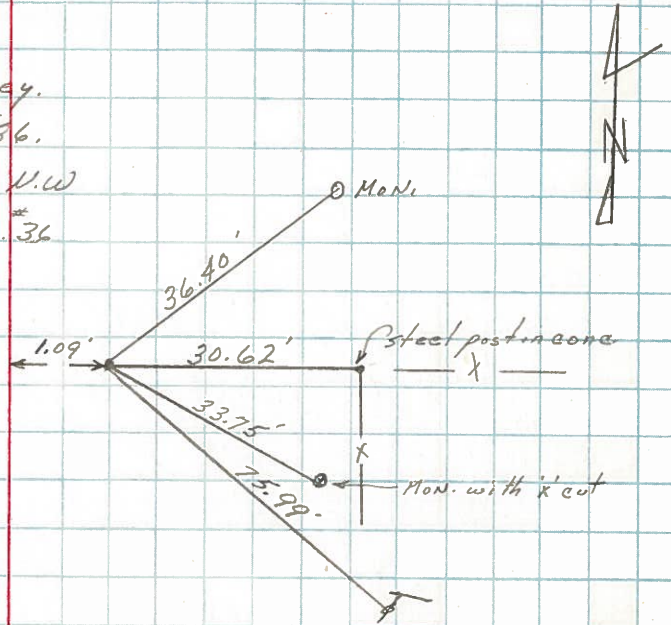 ey.
36.
N.W
. #36
N
MON.
36.40'
1.09'
30.62'
steel post in conc
X
33.75'
X
75.99'
MON. with 'x' cut